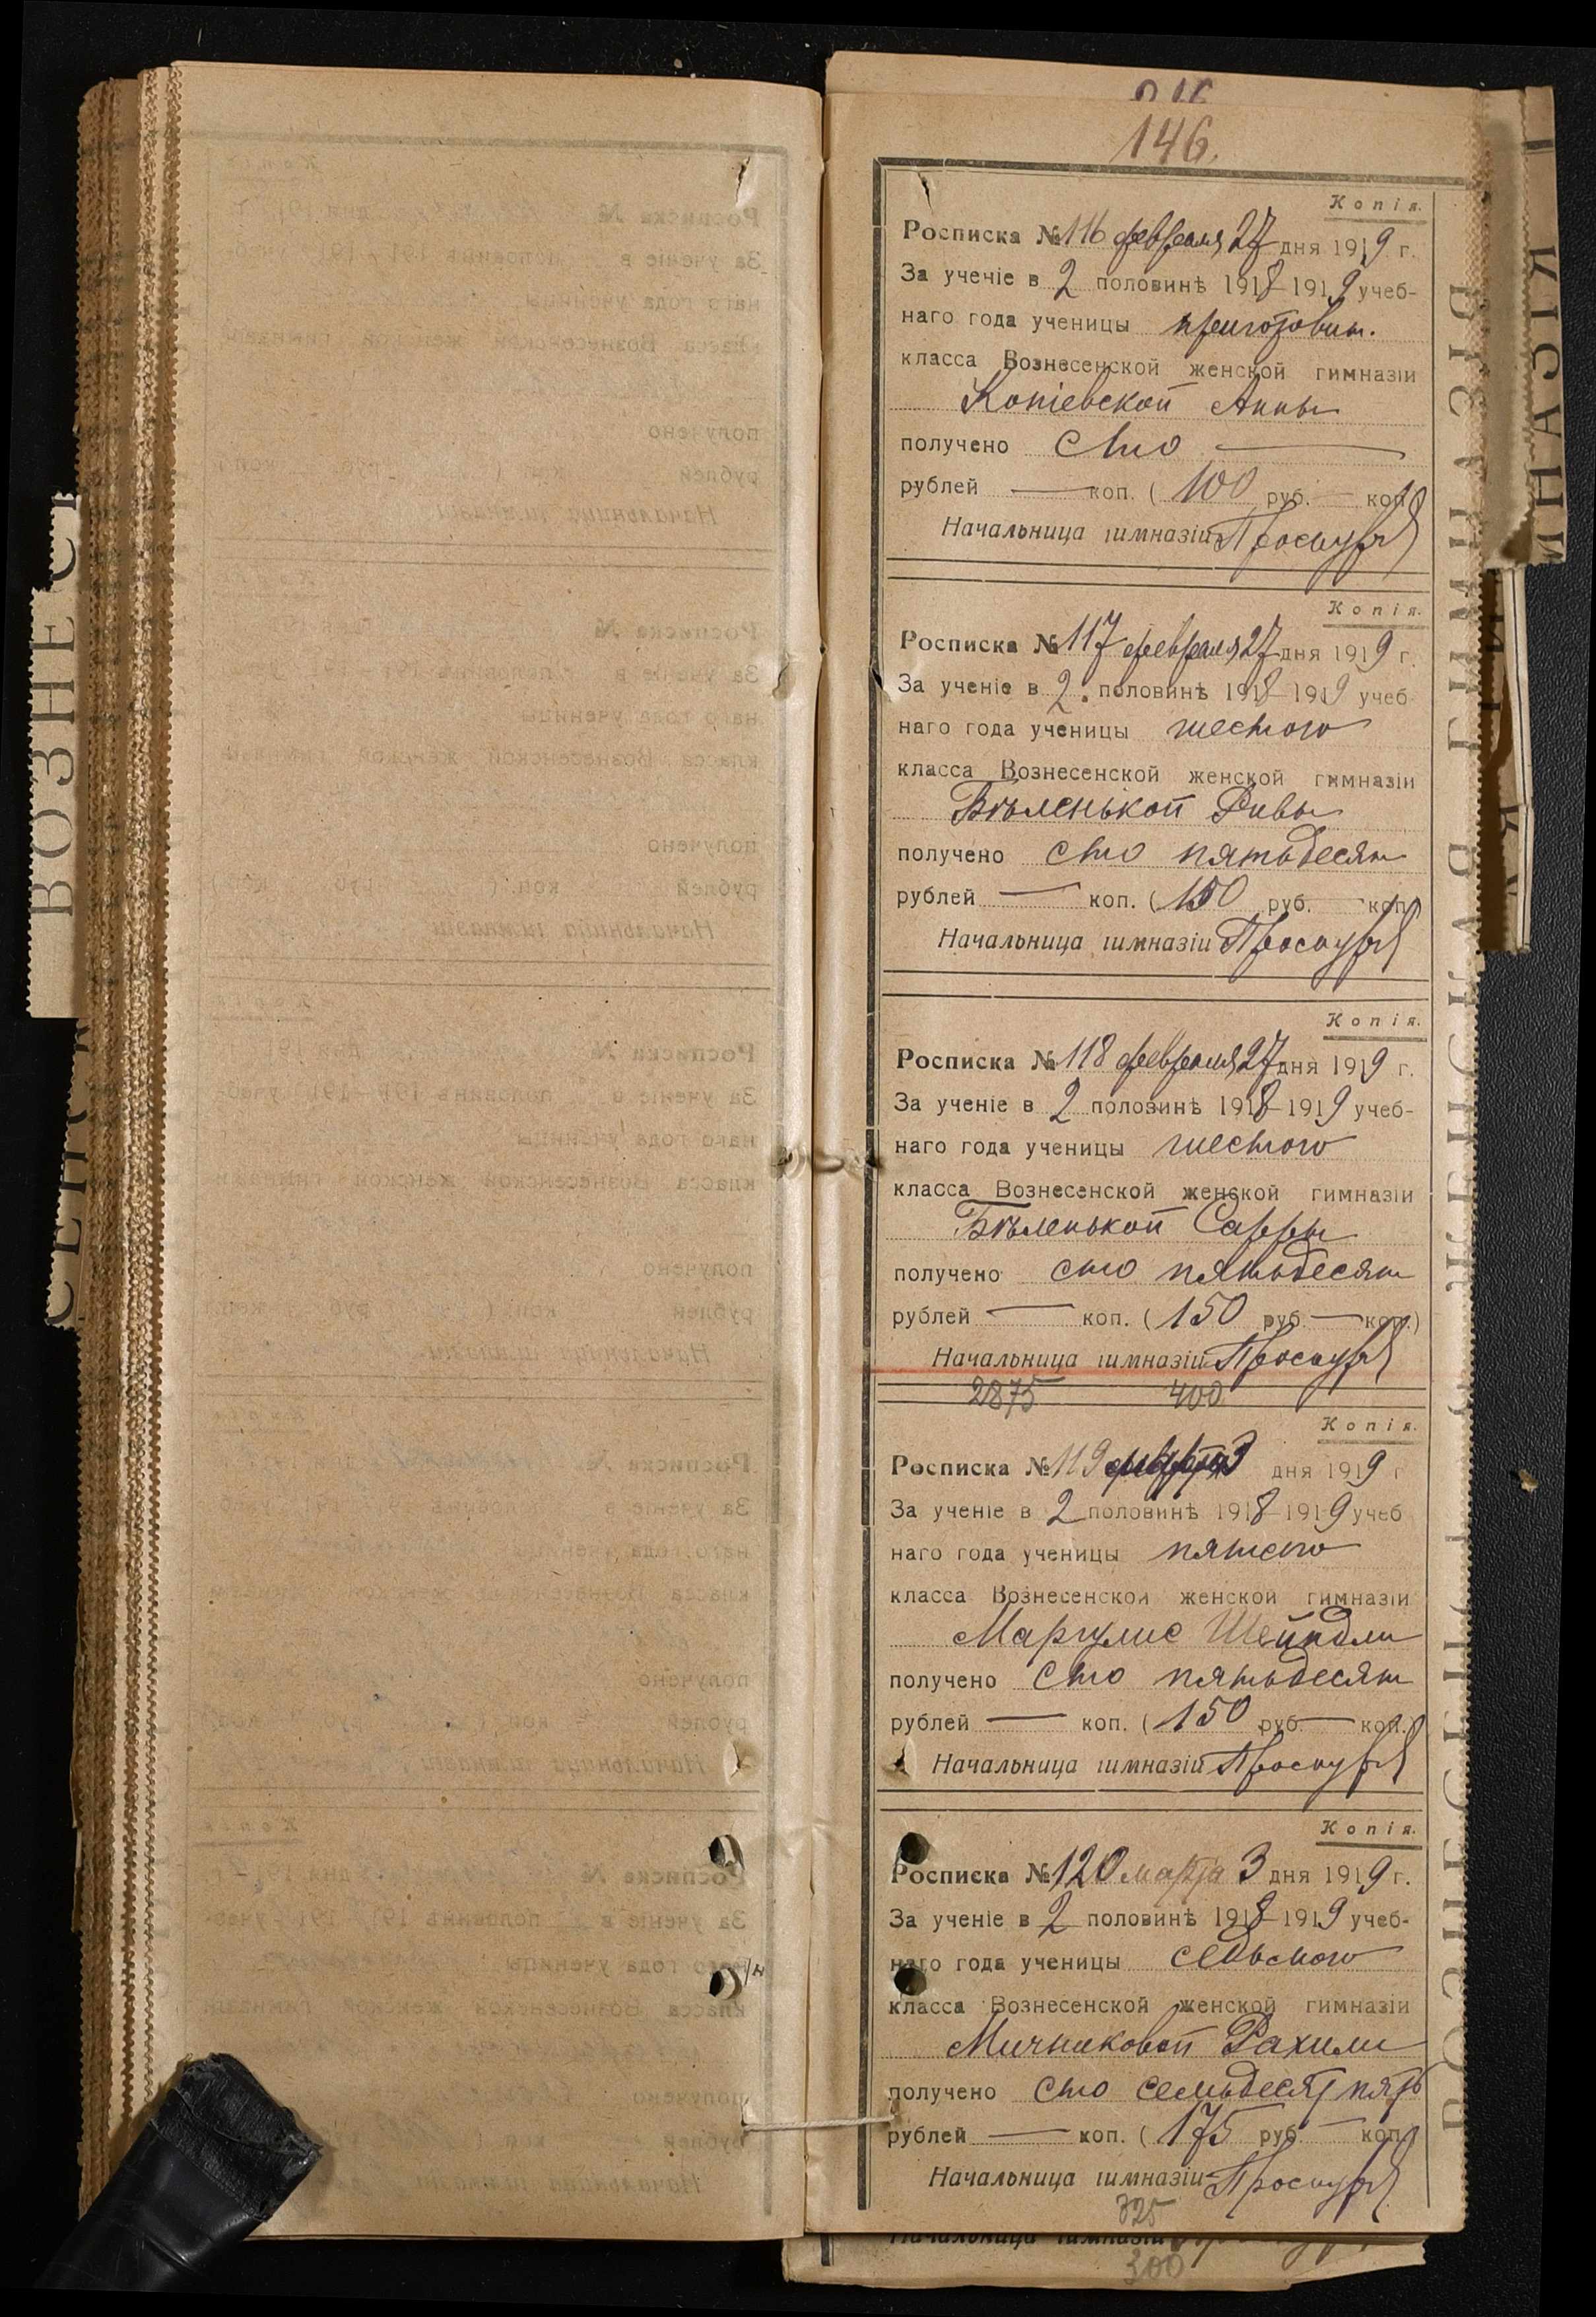 146.
Копія.
Росписка № 116 февраля 27 дня 1919 г.
За ученіе в 2 половинѣ 1918-1919 учеб-
наго года ученицы приготовит.
класса Вознесенской женской гимназіи
Копіевской Анны
получено Сто —
рублей — коп. ( 100 руб. — коп.)
Начальница гимназіи
Копія.
Росписка № 117 февраля 27 дня 1919 г.
За ученіе в 2. половинѣ 1918-1919 учеб-
наго года ученицы шестого
класса Вознесенской женской гимназіи
Бѣленькой Ривы
получено сто пятьдесят
рублей — коп. ( 150 руб. — коп.)
Начальница гимназіи
Копія.
Росписка № 118 февраля 27 дня 1919 г.
За ученіе в 2 половинѣ 1918-1919 учеб-
наго года ученицы шестого
класса Вознесенской женской гимназіи
Бѣленькой Сарры
получено сто пятьдесят
рублей — коп. ( 150 руб. — коп.)
Начальница гимназіи
2875 400
Копія.
Росписка № 119 3 дня 1919 г
За ученіе в 2 половинѣ 1918-1919 учеб
наго года ученицы пятого
класса Вознесенской женской гимназіи
Маргулис Шейндли
получено Сто пятьдесят
рублей — коп. ( 150 руб. — коп.)
Начальница гимназіи
Копія.
Росписка № 120 марта 3 дня 1919 г.
За ученіе в 2 половинѣ 1918-1919 учеб-
наго года ученицы седьмого
класса Вознесенской женской гимназіи
Мичниковой Рахили
получено Сто семьдесят пять
рублей — коп. ( 175 руб — коп.)
Начальница гимназіи
325
Начальница гимназіи
300
ВОЗНЕС